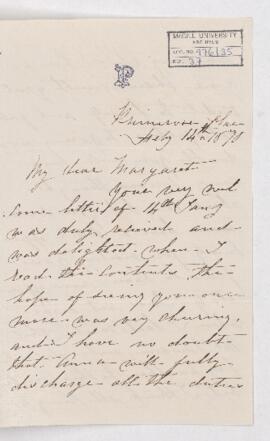 McGILL UNIVERSITY
ARCHIVES
ACC. NO. 976/35
REF. 37
P
Primrose
Feby 14th 1870
My dear Margaret
Your very wel
come letter of 14th Jany
was duly received and
was delighted when I
read the contents the
hope of seeing you once
more was very cheering,
and I have no doubt
that Anna will fully
discharge all the duties